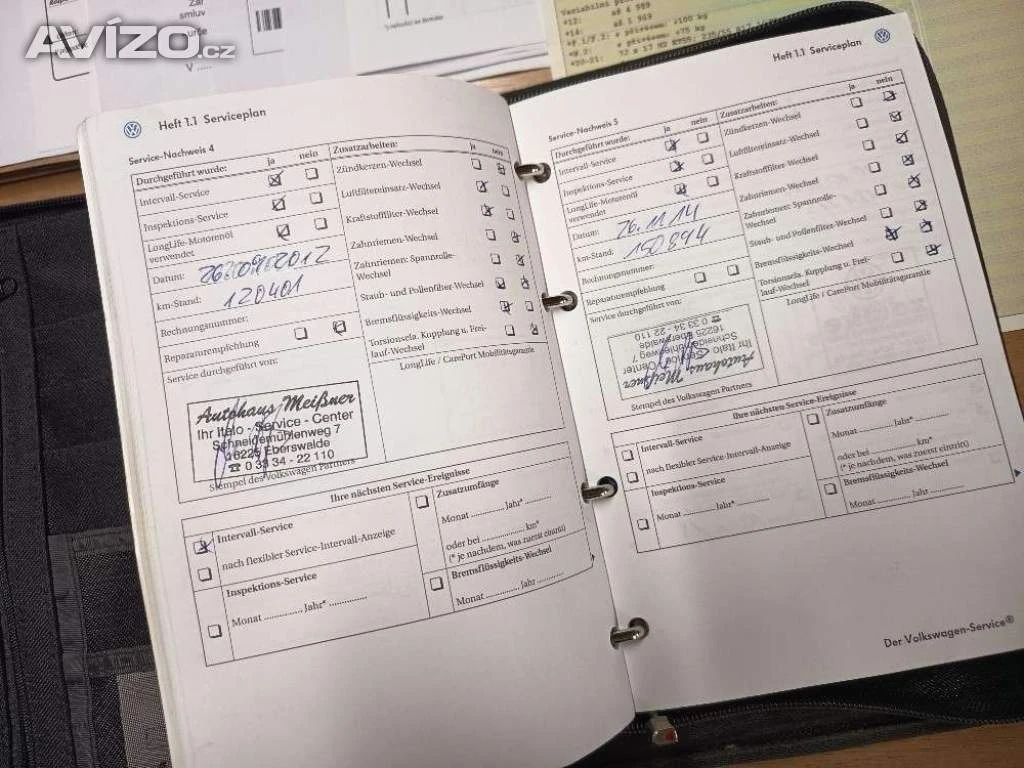 Avízo.cz
smluv
určε
V .....
Variabilní p
*12: až 4 989
*14: až 5 989
Heft 1.1 Serviceplan
Service-Nachweis 4
Durchgeführt wurde: ja nein
Intervall-Service
Inspektions-Service
LongLife-Motorenöl
verwendet
Datum: 26.09.2012
km-Stand: 120401
Rechnungsnummer:
Reparaturempfehlung
Service durchgeführt von:
Autohaus Meißner
Ihr Italo - Service - Center
Schneidemühlenweg 7
16225 Eberswalde
☎ 0 33 34 - 22 110
Stempel des Volkswagen Partners
Zusatzarbeiten: ja nein
Zündkerzen-Wechsel
Luftfiltereinsatz-Wechsel
Kraftstofffilter-Wechsel
Zahnriemen-Wechsel
Zahnriemen: Spannrolle-
Wechsel
Staub- und Pollenfilter-Wechsel
Bremsflüssigkeits-Wechsel
Torsionsela. Kupplung u. Frei-
lauf-Wechsel
LongLife / CarePort Mobilitätsgarantie
Ihre nächsten Service-Ereignisse
Intervall-Service
nach flexibler Service-Intervall-Anzeige
Inspektions-Service
Monat ............... Jahr* ...............
Zusatzumfänge
Monat ............. Jahr* ..........
oder bei ................ km*
(* je nachdem, was zuerst eintritt)
Bremsflüssigkeits-Wechsel
Monat ............. Jahr ..........
Heft 1.1 Serviceplan
Service-Nachweis 5
Durchgeführt wurde: ja nein
Intervall-Service
Inspektions-Service
LongLife-Motorenöl
verwendet
Datum: 26.11.14
km-Stand: 150894
Rechnungsnummer:
Reparaturempfehlung
Service durchgeführt von:
Autohaus Meißner
Ihr Italo - Service - Center
Schneidemühlenweg 7
16225 Eberswalde
☎ 0 33 34 - 22 110
Stempel des Volkswagen Partners
Zusatzarbeiten: ja nein
Zündkerzen-Wechsel
Luftfiltereinsatz-Wechsel
Kraftstofffilter-Wechsel
Zahnriemen-Wechsel
Zahnriemen: Spannrolle-
Wechsel
Staub- und Pollenfilter-Wechsel
Bremsflüssigkeits-Wechsel
Torsionsela. Kupplung u. Frei-
lauf-Wechsel
LongLife / CarePort Mobilitätsgarantie
Ihre nächsten Service-Ereignisse
Intervall-Service
nach flexibler Service-Intervall-Anzeige
Inspektions-Service
Monat ............... Jahr* ...............
Zusatzumfänge
Monat ............. Jahr* ..........
oder bei ................ km*
(* je nachdem, was zuerst eintritt)
Bremsflüssigkeits-Wechsel
Monat ............. Jahr ..........
Der Volkswagen-Service®